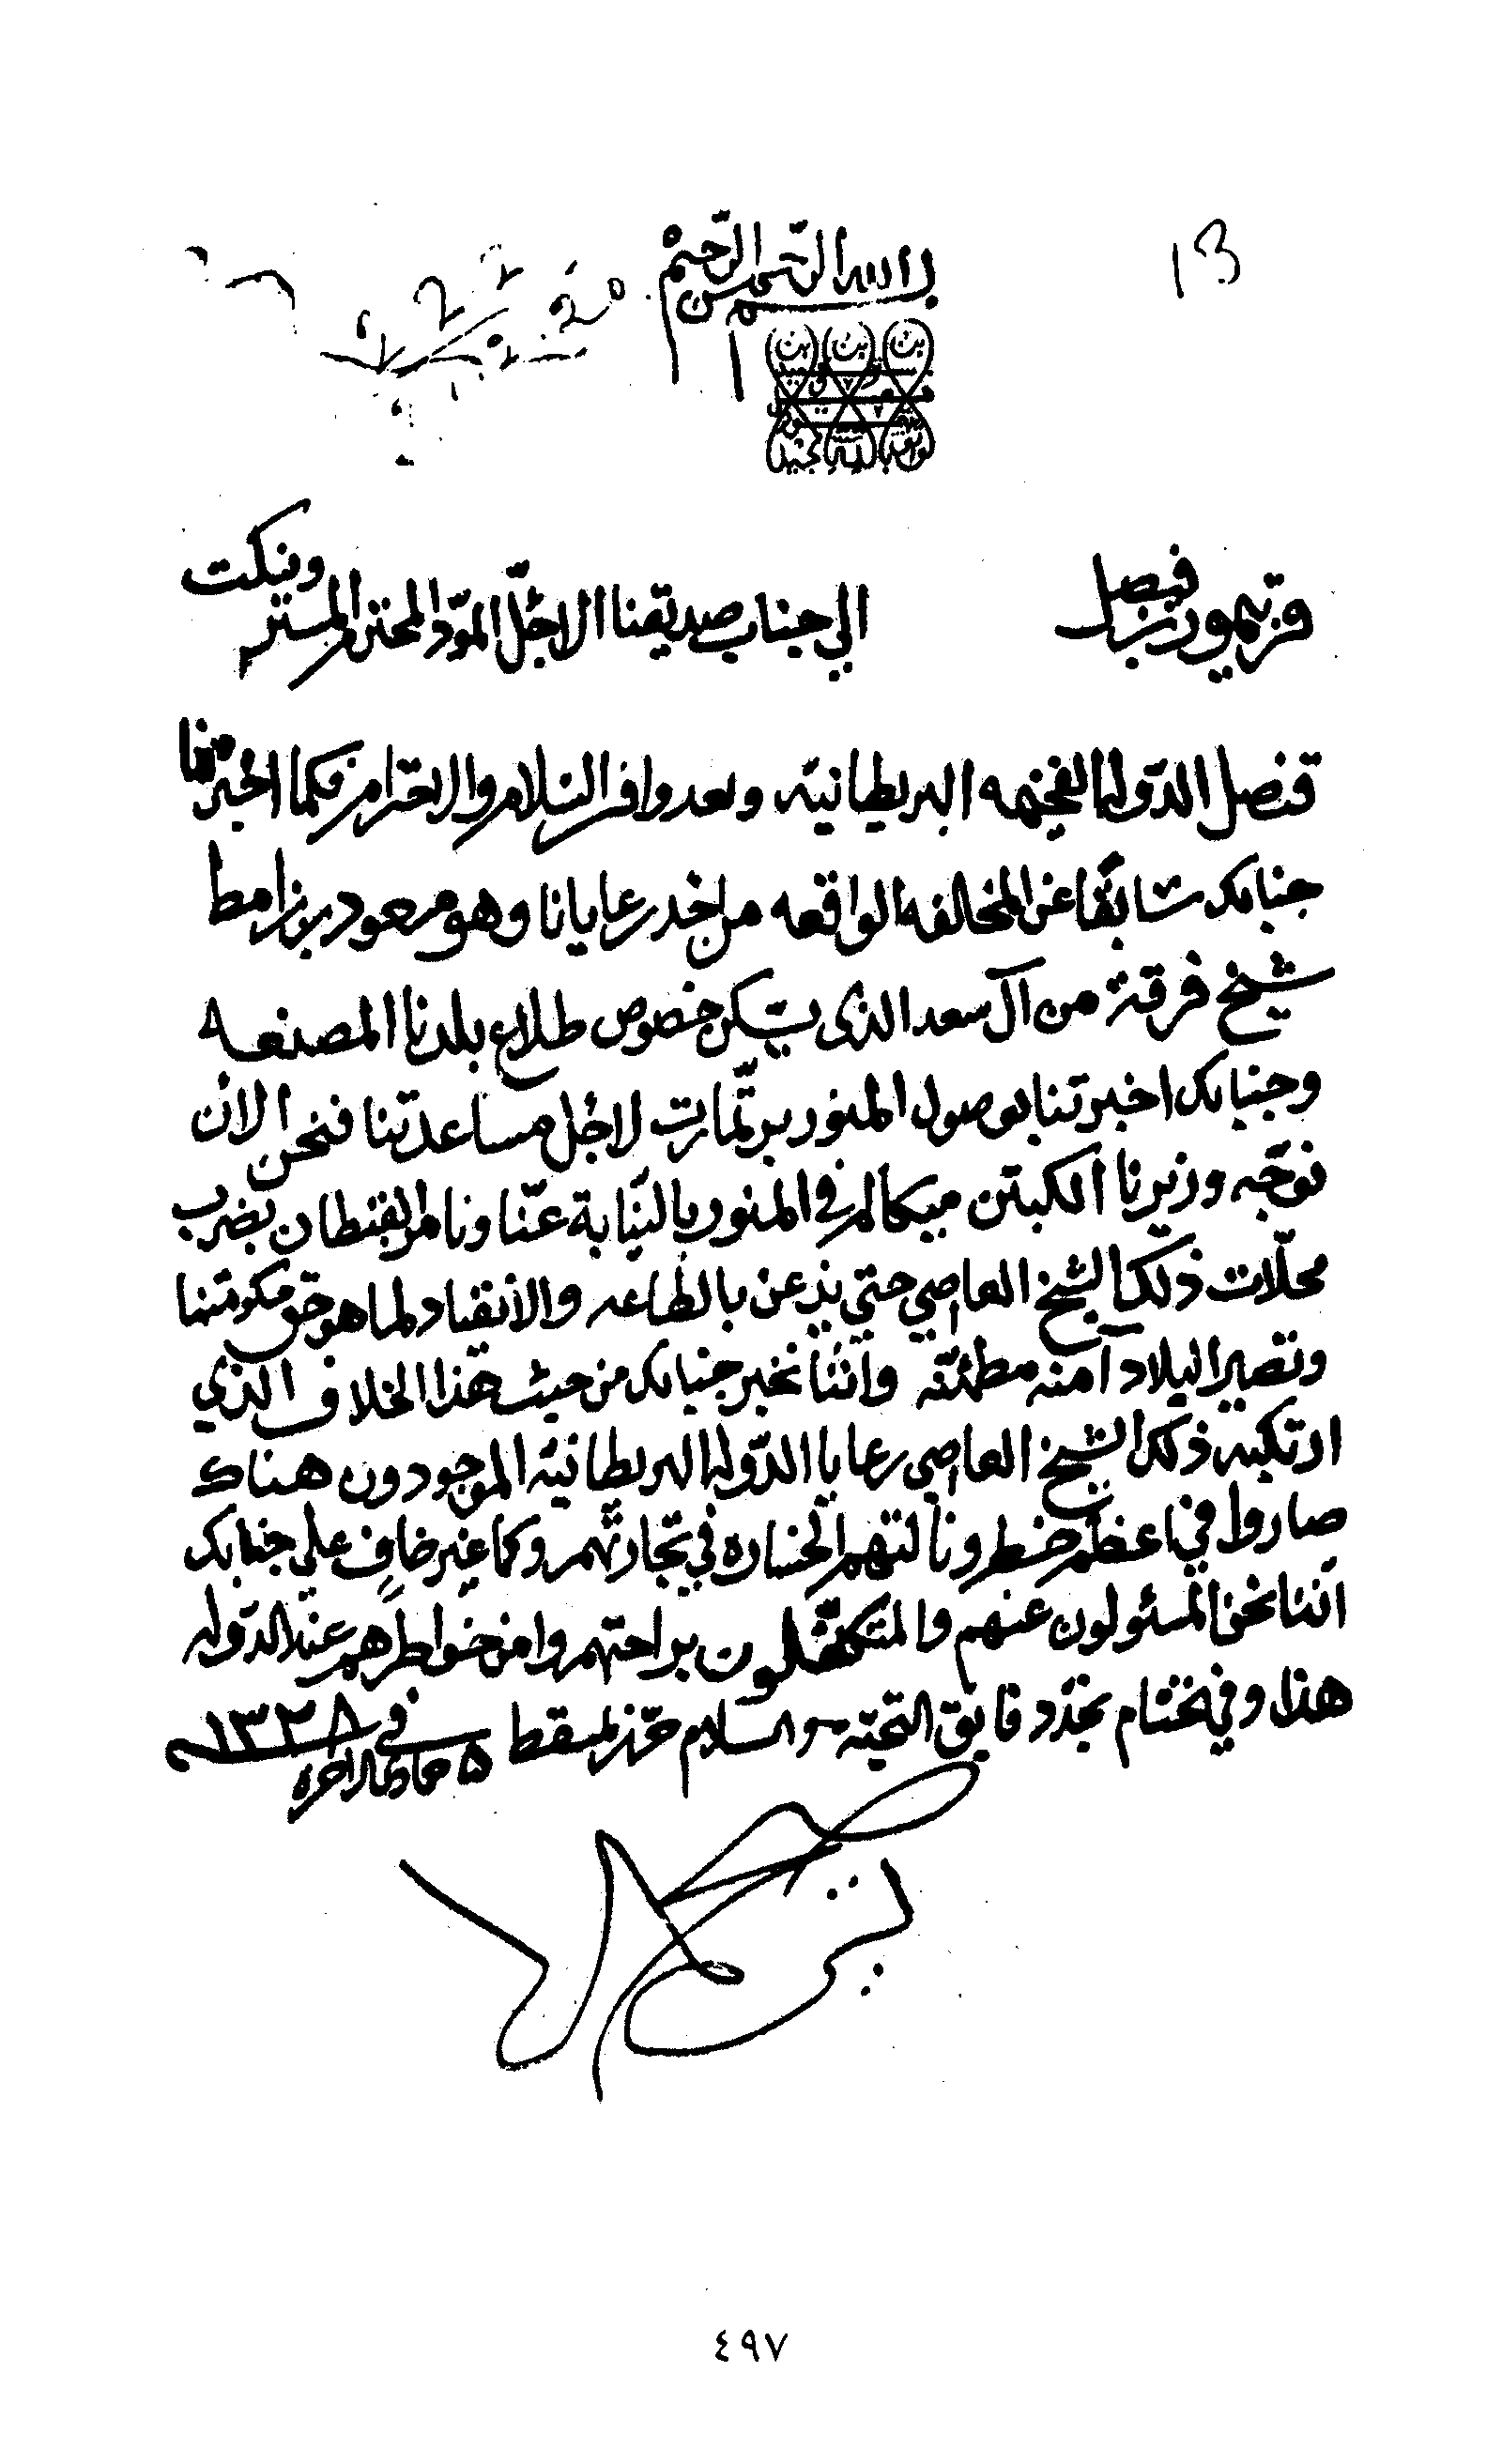 ١٣
بسم الله الرحمن الرحيم
من تيمور بن فيصل الى جناب صديقنا الاجلّ المودّ المحترم المستر ونيكت
قنصل الدّولة الفخيمه البريطانيّه وبعد وافر السلام والاحترام فكما اخبرنا
جنابك سابقًا عن المخالفه الواقعه من احد رعايانا وهو مسعود بن
شيخ فرقة من آل سعد الذي يسكن خصوص طلاع بلدنا المصنعه
وجنابك اخبرتنا بوصول المنور لاجل مساعدتنا فنحن الان
نوجّه وزيرنا الكبتن ميكالم في المنور بالنّيابة عنّا ونامر القبطان بضرب
محلّات ذلك الشيخ العاصي حتى يذعن بالطاعه والانقياد لما هو حق حكومتنا
وتصير البلاد آمنه مطمئنّه واننا نخبر جنابك من حيث هذا الخلاف الذي
ارتكبه ذلك الشيخ العاصي رعايا الدّولة البريطانيّه الموجودون هناك
صاروا في اعظم خطر ونالتهم الخساره في تجارتهم وكما غير خافٍ على جنابك
اننا نحن المسئولون عنهم والمتكفّلون براحتهم وامن خواطرهم عند الدّوله
هذا وفي الختام نجدّد فايق التحيّه والسلام حرّر لمسقط في ٥ جمادى الآخره ١٣٣٨
٤٩٧